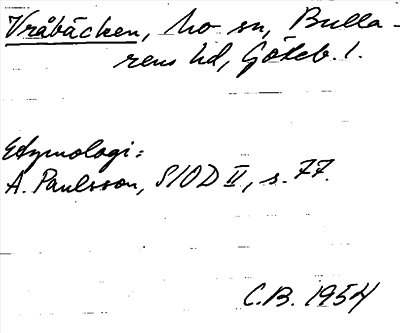 Vråbäcken, ho sn, Bulla-
rens hd, Göteb. l.
Etymologi:
A. Paulsson, SIOD II, s. 77.
C.B. 1954